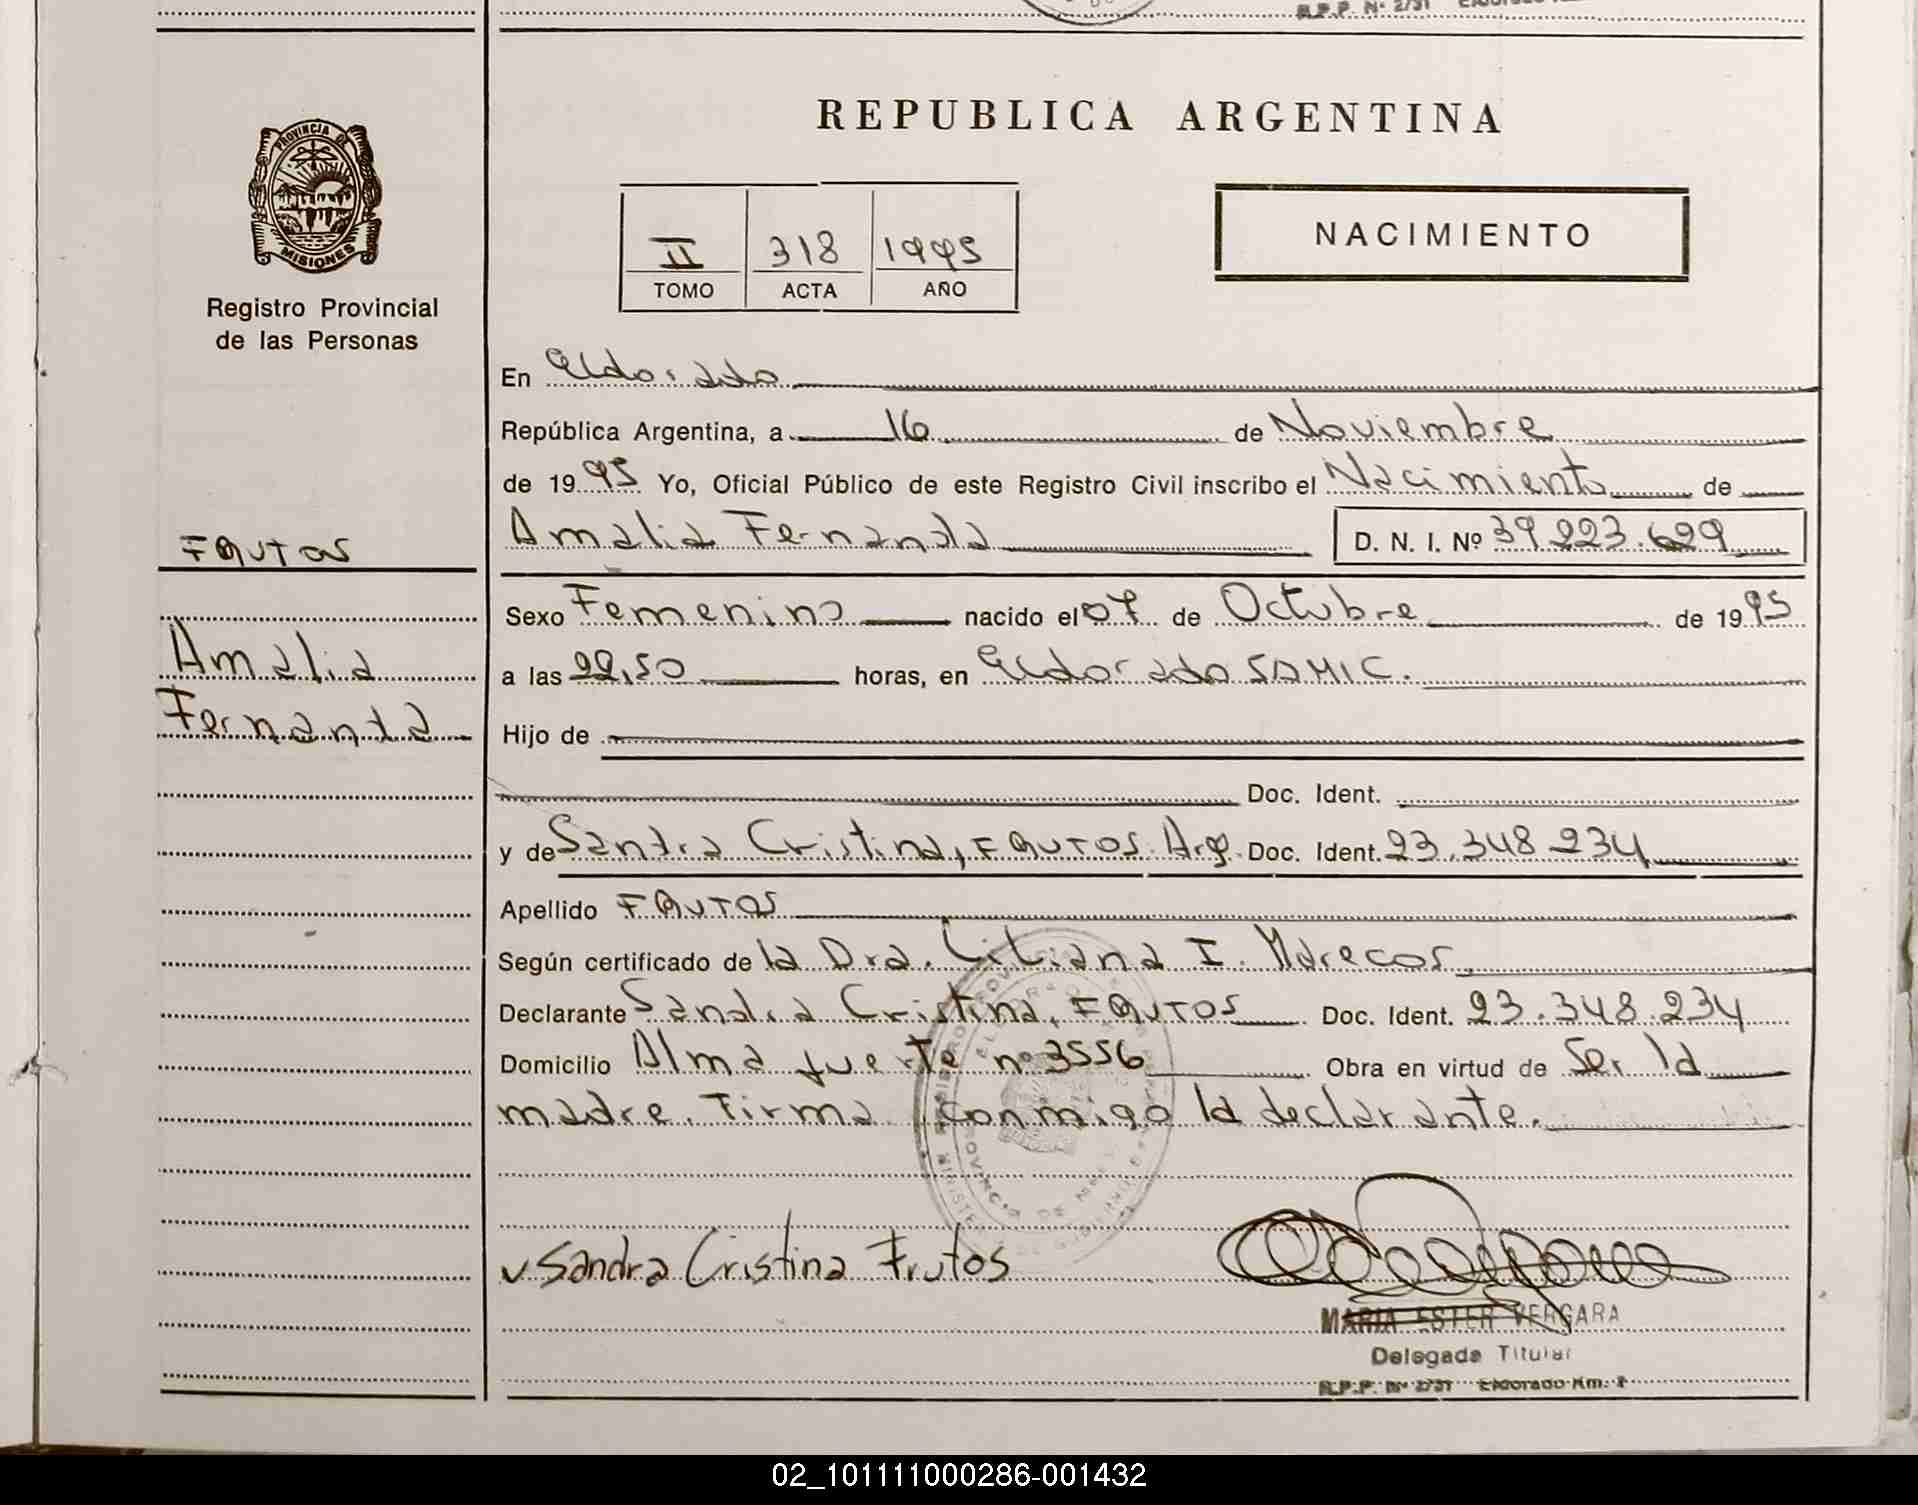 R.P.P. Nº 2/31
REPUBLICA ARGENTINA
PROVINCIA DE
MISIONES
Registro Provincial
de las Personas
II 318 1995
TOMO ACTA AÑO
NACIMIENTO
En Eldorado
República Argentina, a 16 de Noviembre
de 1995 Yo, Oficial Público de este Registro Civil inscribo el Nacimiento de
FRUTOS
Amalia Fernanda D. N. I. Nº 39.223.629
Sexo Femenino nacido el 07 de Octubre de 1995
Amalia
a las 22,50 horas, en Eldorado SAMIC.
Fernanda
Hijo de
Doc. Ident.
y de Sandra Cristina, FRUTOS. Arg. Doc. Ident. 23.348.234
Apellido FRUTOS
Según certificado de la Dra. Liliana I. Marecos
Declarante Sandra Cristina, FRUTOS Doc. Ident. 23.348.234
Domicilio Alma fuerte nº 3556 Obra en virtud de Ser la
madre. Firma conmigo la declarante.
Sandra Cristina Frutos
MARIA ESTER VERGARA
Delegada Titular
R.P.P. Nº 2/31 Eldorado Km. 2
02_101111000286-001432